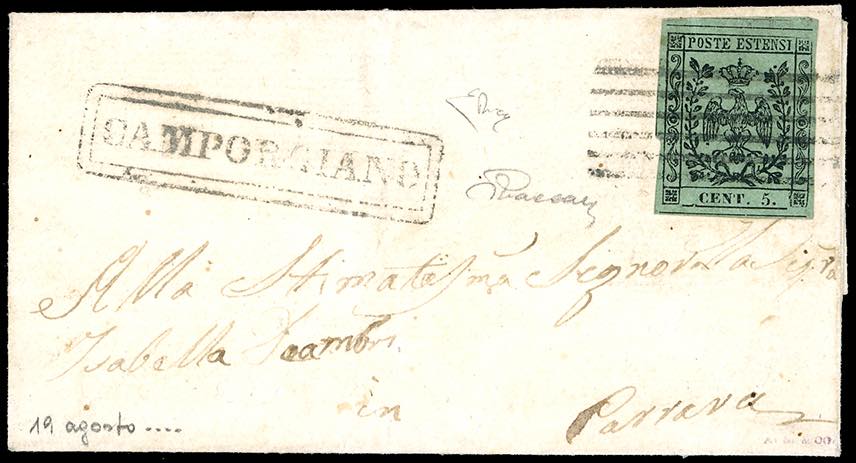 POSTE ESTENSI
CENT. 5.
CAMPORGIANO
Alla Stimatissma Signora La Sigra
Isabella
in
19 agosto ....